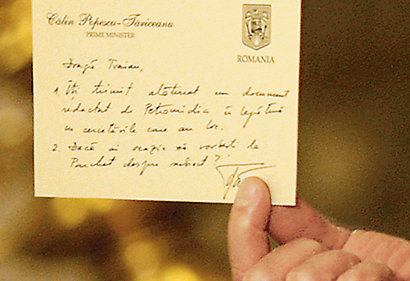 Calin Popescu-Tariceanu
PRIME MINISTER
ROMANIA
Dragă Traian,
1. Îți trimit alăturat un document
redactat de Petromidia în legătură
cu cercetările care au loc.
2. Dacă ai ocazia să vorbești la
Parchet despre subiect?